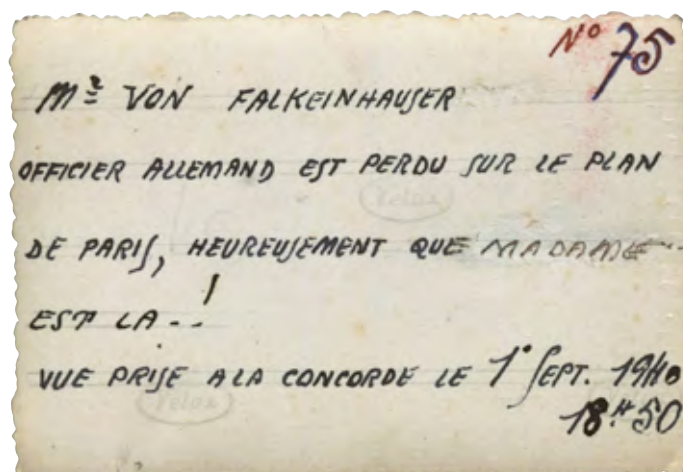 N° 75
Mr VON FALKEINHAUSER
OFFICIER ALLEMAND EST PERDU SUR LE PLAN
DE PARIS, HEUREUSEMENT QUE MADAME
EST LA --!
VUE PRISE A LA CONCORDE LE 1° SEPT. 1940
18.H 50
Velox
Velox